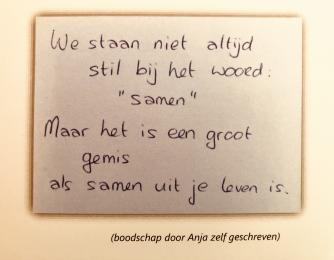 We staan niet altijd
stil bij het woord:
"samen"
Maar het is een groot
gemis
als samen uit je leven is.
(boodschap door Anja zelf geschreven)